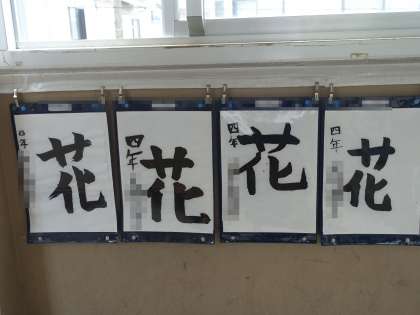 花
四年
花
四年
花
四年
花
四年